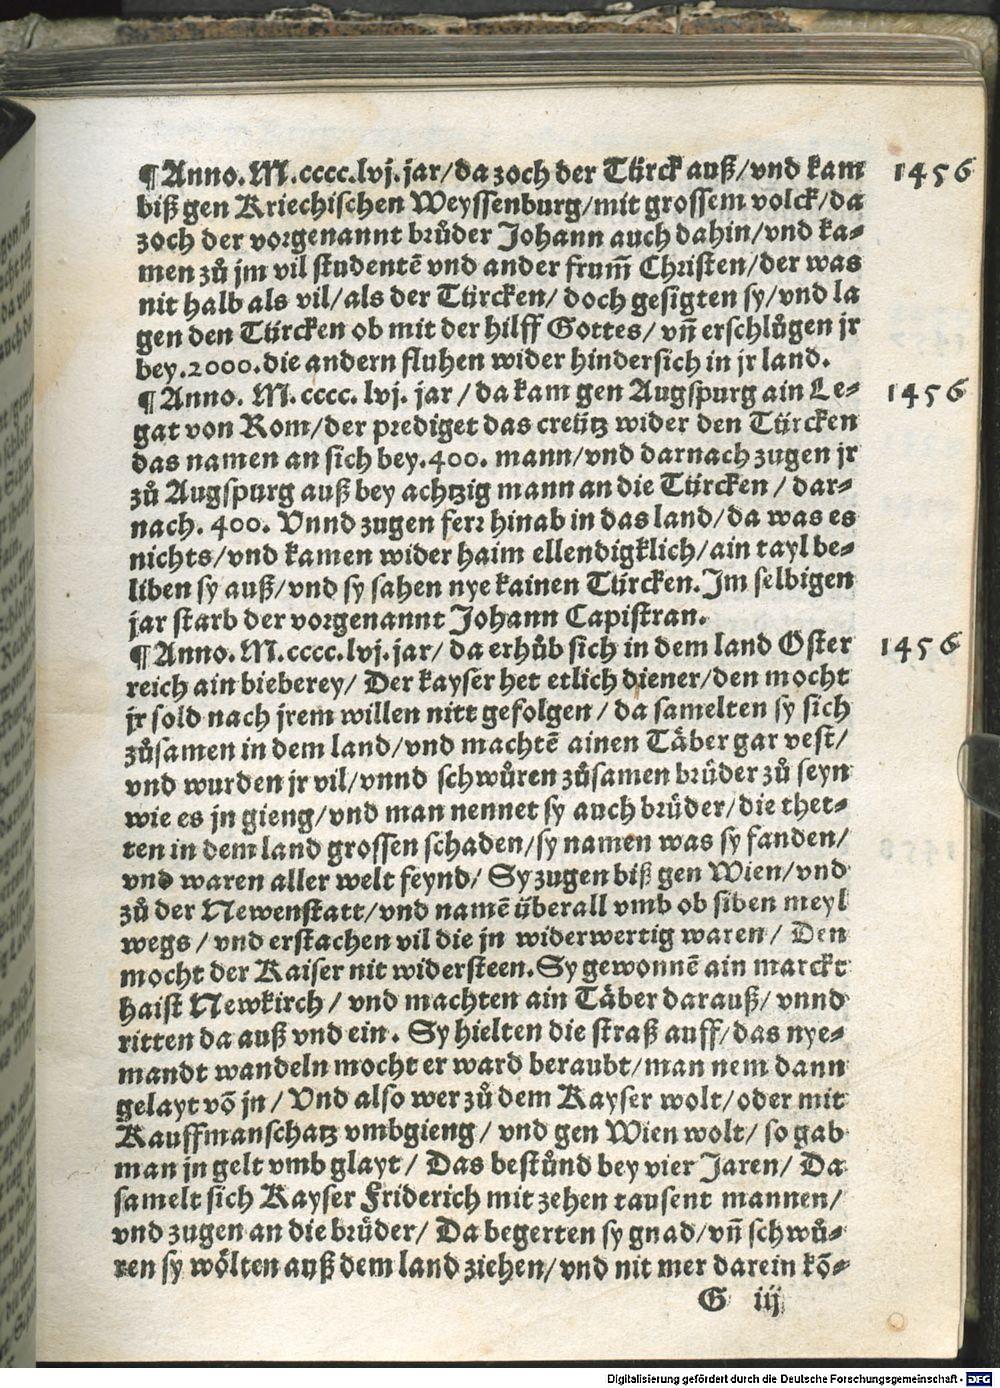 ¶Anno. M.cccc.lvj. jar/da zoch der Türck auß/vnd kam 1456
biß gen Kriechischen Weyssenburg/mit grossem volck/da
zoch der vorgenannt brůder Johann auch dahin/vnd ka⸗
men zů jm vil studentē vnd ander frum̃ Christen/der was
nit halb als vil/als der Türcken/ doch gesigten sy/vnd la
gen den Türcken ob mit der hilff Gottes/ vñ erschlůgen jr
bey.2000.die andern fluhen wider hindersich in jr land.
¶Anno. M.cccc. lvj. jar / da kam gen Augspurg ain Le⸗ 1456
gat von Rom/der prediget das creütz wider den Türcken
das namen an sich bey.400. mann/vnd darnach zugen jr
zů Augspurg auß bey achtzig mann an die Türcken / dar⸗
nach. 400. Vnnd zugen ferꝛ hinab in das land/da was es
nichts/vnd kamen wider haim ellendigklich/ain tayl be⸗
liben sy auß/vnd sy sahen nye kainen Türcken.Im selbigen
jar starb der vorgenannt Johann Capistran.
¶Anno. M.cccc.lvj.jar/ da erhůb sich in dem land Oster 1456
reich ain bieberey/ Der kayser het etlich diener/den mocht
jr sold nach jrem willen nitt gefolgen / da samelten sy sich
zůsamen in dem land/vnd machtē ainen Täber gar vest/
vnd wurden jr vil/vnnd schwůren zůsamen brüder zů seyn
wie es jn gieng/vnd man nennet sy auch brüder/die thet⸗
ten in dem land grossen schaden/sy namen was sy fanden/
vnd waren aller welt feynd/ Sy zugen biß gen Wien/vnd
zů der Newenstatt/vnd namē überall vmb ob siben meyl
wegs / vnd erstachen vil die jn widerwertig waren/ Den
mocht der Kaiser nit widersteen.Sy gewonnē ain marckt
haist Newkirch / vnd machten ain Täber darauß/ vnnd
ritten da auß vnd ein. Sy hielten die straß auff/das nye⸗
mandt wandeln mocht er ward beraubt/man nem dann
gelayt võ jn / Vnd also wer zů dem Kayser wolt/oder mit
Kauffmanschatz vmbgieng / vnd gen Wien wolt/ so gab
man jn gelt vmb glayt / Das bestůnd bey vier Jaren/ Da
samelt sich Kayser Friderich mit zehen tausent mannen/
vnd zugen an die brüder/ Da begerten sy gnad/vñ schwů⸗
ren sy wölten auß dem land ziehen/vnd nit mer darein kõ⸗
G iij
Digitalisierung gefördert durch die Deutsche Forschungsgemeinschaft - DFG